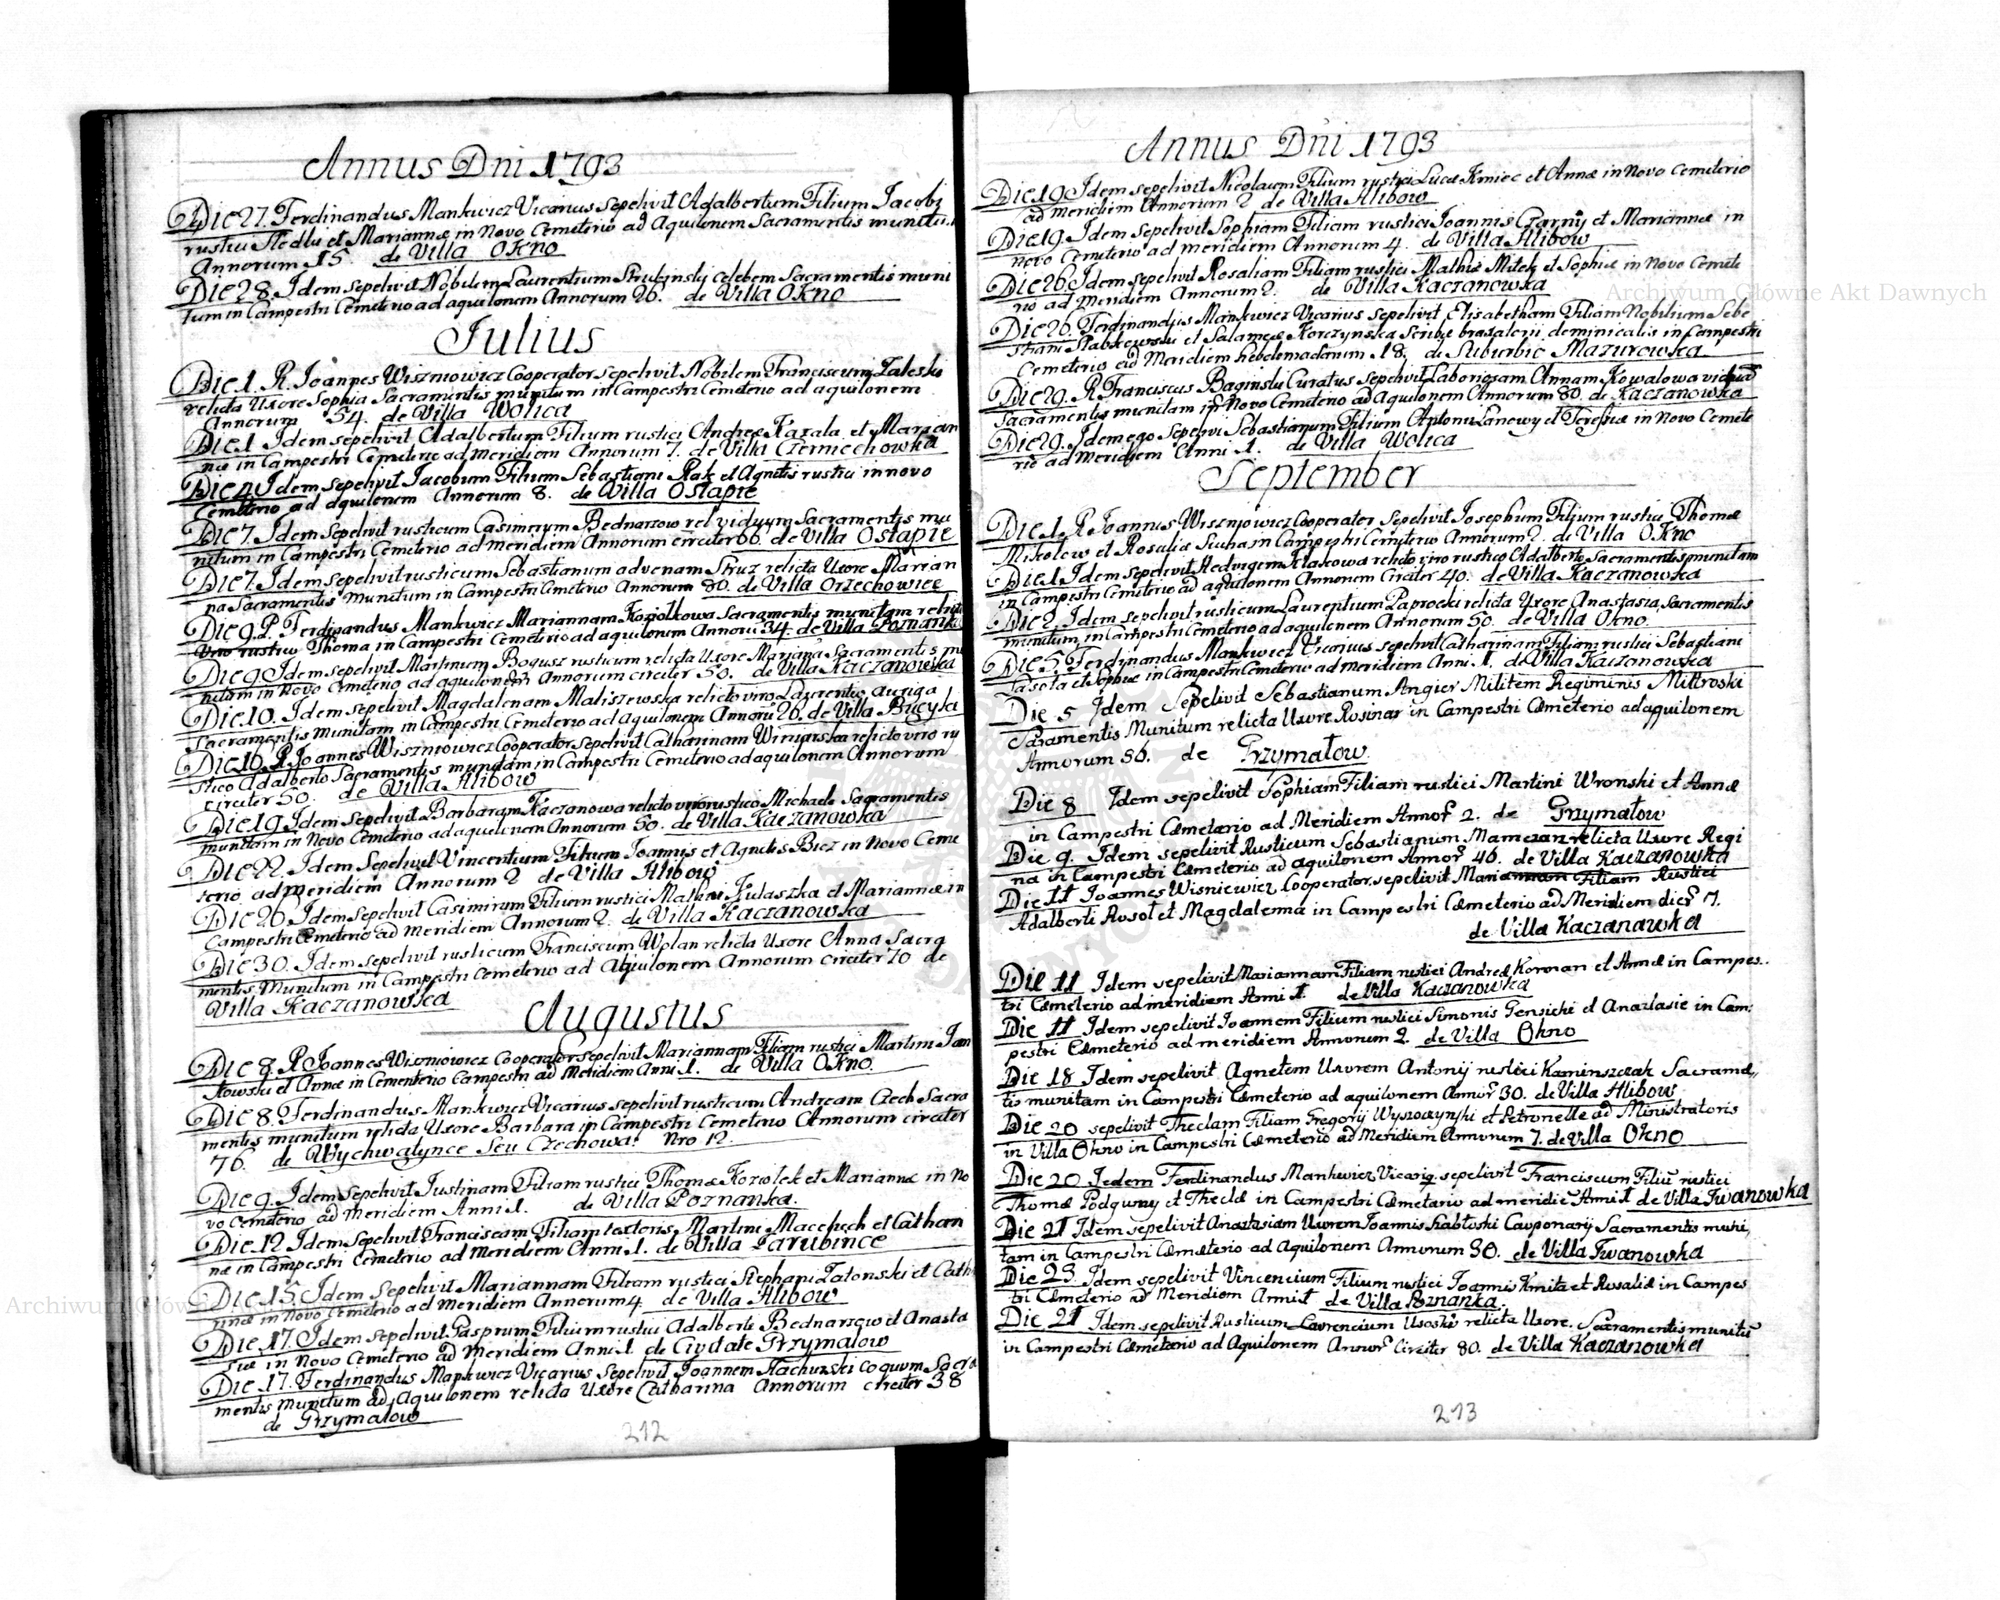 Annus Dni 1793
Die 27. Ferdinandus Mankwicz Vicarius Sepelivit Adalbertum Filium Jacobi
rustici Siedlu et Mariannæ in Novo Cemeterio ad Aquilonem Sacramentis munitu
Annorum 15 de Villa Okno
Die 28. Idem Sepelivit Nobilem Laurentium Strubinsky celebem Sacramentis muni
tum in Campestri Cemeterio ad aquilonem Annorum 26. de Villa Okno
Julius
Die 1. R. Joannes Wiszniowicz Cooperator Sepelivit Nobilem Franciscum Zaleski
relicta Uxore Sophia Sacramentis munitum in Campestri Cemeterio ad aquilonem
Annorum 54. de Villa Wolica
Die 1 Idem sepelivit Adalbertum Filium rustici Andreæ Kazala et Marian
næ in Campestri Cemeterio ad Meridiem Annorum 7. de Villa Czerniechowka
Die 4 Idem sepelivit Jacobum Filium Sebastiani Rak et Agnetis rustici in novo
Cemeterio ad aquilonem Annorum 8. de Villa Ostapie
Die 7. Idem Sepelivit rusticum Casimirum Bednarzow rel viduum Sacramentis mu
nitum in Campestri Cemeterio ad meridiem Annorum circiter 66. de Villa Ostapie
Die 7. Idem Sepelivit rusticum Sebastianum advenam Struz relicta Uxore Marian
na Sacramentis Munitum in Campestri Cemeterio Annorum 80. de Villa Orzechowiec
Die 9. P. Ferdinandus Mankwicz Mariannam Koziolkowa Sacramentis munitam relicto
Viro rustico Thoma in Campestri Cemeterio ad aquilonem Annorū 34. de Villa Poznanka
Die 9 Idem sepelivit Martinum Bogusz rusticum relicta Uxore Mariana Sacramentis mu
nitum in Novo Cemeterio ad aquilonem Annorum circiter 50. de Villa Kaczanowka
Die 10. Idem Sepelivit Magdalenam Maliszewska relicto viro Lazrentio Auriga
Sacramentis munitam in Campestri Cemeterio ad Aquilonem Annorū 26. de Villa Bucyki
Die 16. R. Joannes Wiszniowicz Cooperator Sepelivit Catharinam Winiarska relicto viro ru
stico Adalberto Sacramentis munitam in Campestri Cemeterio ad aquilonem Annorum
circiter 50. de Villa Hlibow
Die 19. Idem Sepelivit Barbaram Kaczanowa relicto viro rustico Michaele Sacramentis
munitam in Novo Cemeterio ad aquilonem Annorum 50. de Villa Kaczanowka
Die 22. Idem Sepelivit Vincentium Filium Joannis et Agnetis Biez in Novo Ceme
terio ad meridiem Annorum 2 de Villa Hlibow
Die 26. Idem sepelivit Casimirum Filium rustici Mathiæ Kulaszka et Mariannæ in
Campestri Cemeterio ad Meridiem Annorum 2. de Villa Kaczanowka
Die 30. Idem Sepelivit rusticum Franciscum Uplan relicta Uxore Anna Sacra
mentis Munitum in Campestri Cemeterio ad Aquilonem Annorum circiter 70 de
Villa Kaczanowska
Augustus
Die 8. R Joannes Wiszniowicz Cooperator sepelivit Mariannam Filiam rustici Martini Jan
kowski et Annæ in Cementerio Campestri ad Meridiem Anni 1. de Villa Okno
Die 8. Ferdinandus Mankwicz Vicarius sepelivit rusticum Andream Czech Sacra
mentis munitum relicta Uxore Barbara in Campestri Cemeterio Annorum circiter
76. de Wychwatynce Seu Czechowa: Nro 12.
Die 9. Idem Sepelivit Justinam Filiam rustici Thomæ Koziolek et Mariannæ in No
vo Cemeterio ad Meridiem Anni 1. de Villa Poznanka.
Die 12. Idem Sepelivit Franciscam Filiam textoris Martini Maceluch et Cathari
næ in Campestri Cemeterio ad Meridiem Anni 1. de Villa Zarubince
Die 15. Idem Sepelivit Mariannam Filiam rustici Stephani Zatonski et Cath
rinæ in Novo Cemeterio ad Meridiem Annorum 4. de Villa Hlibow
Die 17. Idem Sepelivit Gasprum Filium rustici Adalberti Bednarzow et Anasta
siæ in Novo Cemeterio ad Meridiem Anni 1. de Civitate Grzymalow
Die 17. Ferdinandus Mankwicz Vicarius Sepelivit Joannem Stachurski coquum Sacra
mentis munitum ad Aquilonem relicta Uxore Catharina Annorum circiter 38
de Grzymalow
212
Annus Dni 1793
Die 19 Idem sepelivit Nicolaum Filium rustici Lucæ Kmiec et Annæ in Novo Cemeterio
ad meridiem Annorum 2 de Villa Hlibow
Die 19. Idem Sepelivit Sophiam Filiam rustici Joannis Czarny et Mariannæ in
novo Cemeterio ad meridiem Annorum 4. de Villa Hlibow
Die 26. Idem sepelivit Rosaliam Filiam rustici Mathiæ Mitek et Sophiæ in Novo Cemete
rio ad Meridiem Annorum 2. de Villa Kaczanowka
Die 26. Ferdinandus Mankwicz Vicarius sepelivit Elisabetham Filiam Nobilium Seba
stiani Slabkowski et Salameæ Korczynska Scribæ braxatorii dominicalis in Campestri
Cemeterio ad Meridiem hebdomadarum 18. de Suburbio Mazurowka
Die 29. R Franciscus Baginski Curatus sepelivit Laboriosam Annam Kowalowa viduā
Sacramentis munitam in Novo Cemeterio ad Aquilonem Annorum 80. de Kaczanowka
Die 29. Idem ego Sepelivi Sebastianum Filium Antoni Lanewy et Teresiæ in Novo Cemete
rio ad Meridiem Anni 1. de Villa Wolica
September
Die 1. R Joannus Wiszniowicz Cooperator Sepelivit Josephum Filium rustici Thomæ
Mikolow et Rosaliæ Sucha in Campestri Cemeterio Annorum 2. de Villa Okno
Die 1. Idem sepelivit Hedvigem Klakowa relicto viro rustico Adalberto Sacramentis munitam
in Campestri Cemeterio ad aquilonem Annorum Circiter 40. de Villa Kaczanowka
Die 2. Idem sepelivit rusticum Laurentium Paprocki relicta Uxore Anastasia Sacramentis
munitum in Campestri Cemeterio ad aquilonem Annorum 50. de Villa Okno.
Die 5. Ferdinandus Mankwicz Vicarius sepelivit Catharinam Filiam rustici Sebastiani
Lasota et Sophiæ in Campestri Cemeterio ad meridiem Anni 1. de Villa Kaczanowka
Die 5 Idem Sepelivit Sebastianum Angier Militem Regiminis Mittroski
Sacramentis Munitum relicta Uxore Rosina in Campestri Cæmeterio ad aquilonem
Annorum 56. de Grzymałow.
Die 8 Idem sepelivit Sophiam Filiam rustici Martini Wronski et Annæ
in Campestri Cæmetario ad Meridiem Annor 2. de Grzymałow
Die 9. Idem sepelivit Rusticum Sebastianum Mamczan relicta Uxore Regi
na in Campestri Cæmeterio ad aquilonem Annor 46. de Villa Kaczanowka
Die 11 Joannes Wisniewicz Cooperator sepelivit Mariannam Filiam Rustici
Adalberti Rosoł et Magdalenna in Campestri Cæmeterio ad Meridiem dier 7.
de Villa Kaczanawka
Die 11 Idem sepelivit Mariannam Filiam rustici Andreæ Korman et Annæ in Campes..
tri Cæmeterio ad meridiem Anni 1. de Villa Kaczanowka
Die 11 Idem sepelivit Joannem Filium rustici Simonis Gensicki et Anastasie in Cam:
pestri Cæmeterio ad meridiem Annorum 2. de Villa Okno
Die 18 Idem sepelivit Agnetem Uxorem Antonij rustici Kaminszczak Sacrame,,
tis munitam in Campestri Cæmeterio ad aquilonem Annor 30. de Villa Hlibow
Die 20 sepelivit Theclam Filiam Gregorij Wysoczynski et Petronelle ad Ministratoris
in Villa Okno in Campestri Cæmeterio ad Meridiem Annorum 7. de Villa Okno
Die 20 Iedem Ferdinandus Mankwicz Vicarig. sepelivit Franciscum Filiū rustici
Thomæ Podgurny et Theclæ in Campestri Cæmetario ad meridiē Anni 1 de Villa Iwanowka
Die 21 Idem sepelivit Anastasiam Uxorem Joannis Krabłoski Cauponarij Sacramentis muni,
tam in Campestri Cæmeterio ad Aquilonem Annorum 30. de Villa Iwanowka
Die 23 Idem sepelivit Vincencium Filium rustici Joannis Kmita et Rosaliæ in Campes
tri Cæmeterio ad Meridiem Anni 1 de Villa Poznanka.
Die 21 Idem sepelivit Rusticum Lavrencium Ususki relicta Uxore. Sacramentis munitū
in Campestri Cæmeterio ad Aquilonem Annor Circiter 80. de Villa Kaczanowka
213
Archiwum Główne Akt Dawnych